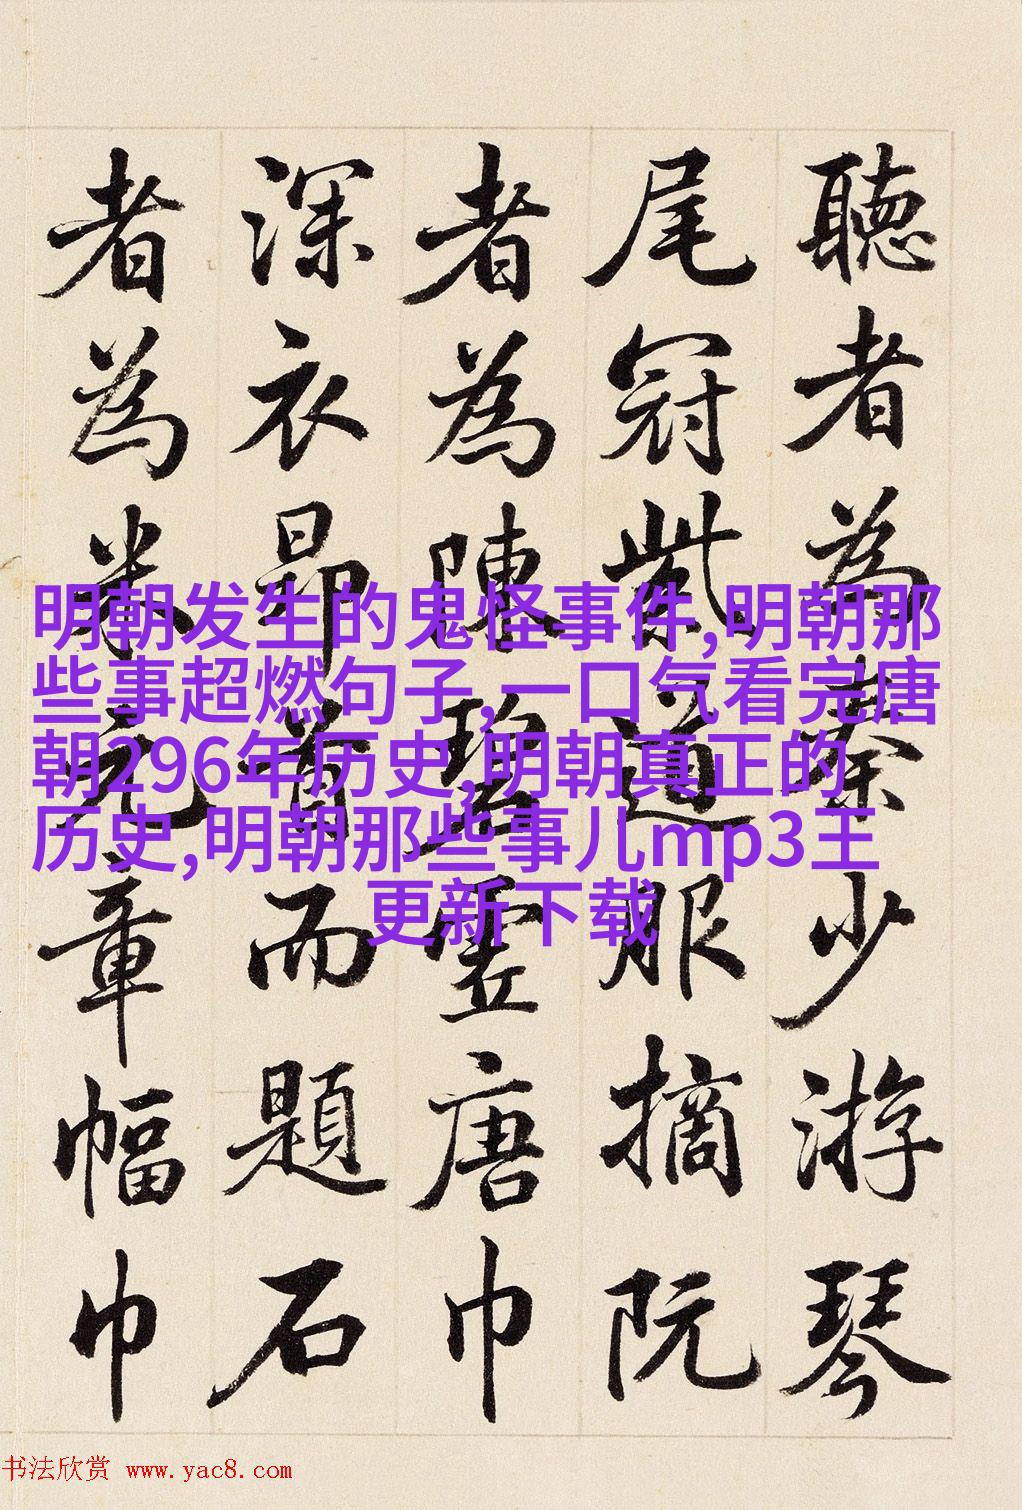 聽者為秦少游琴
尾冠紫道服摘阮
者為陳碧虛唐巾
深衣昂首而題石
者為米元章幅巾
明朝发生的鬼怪事件,明朝那
些事超燃句子,一口气看完唐
朝296年历史,明朝真正的
历史,明朝那些事儿mp3王
更新下载
书法欣赏 www.yac8.com